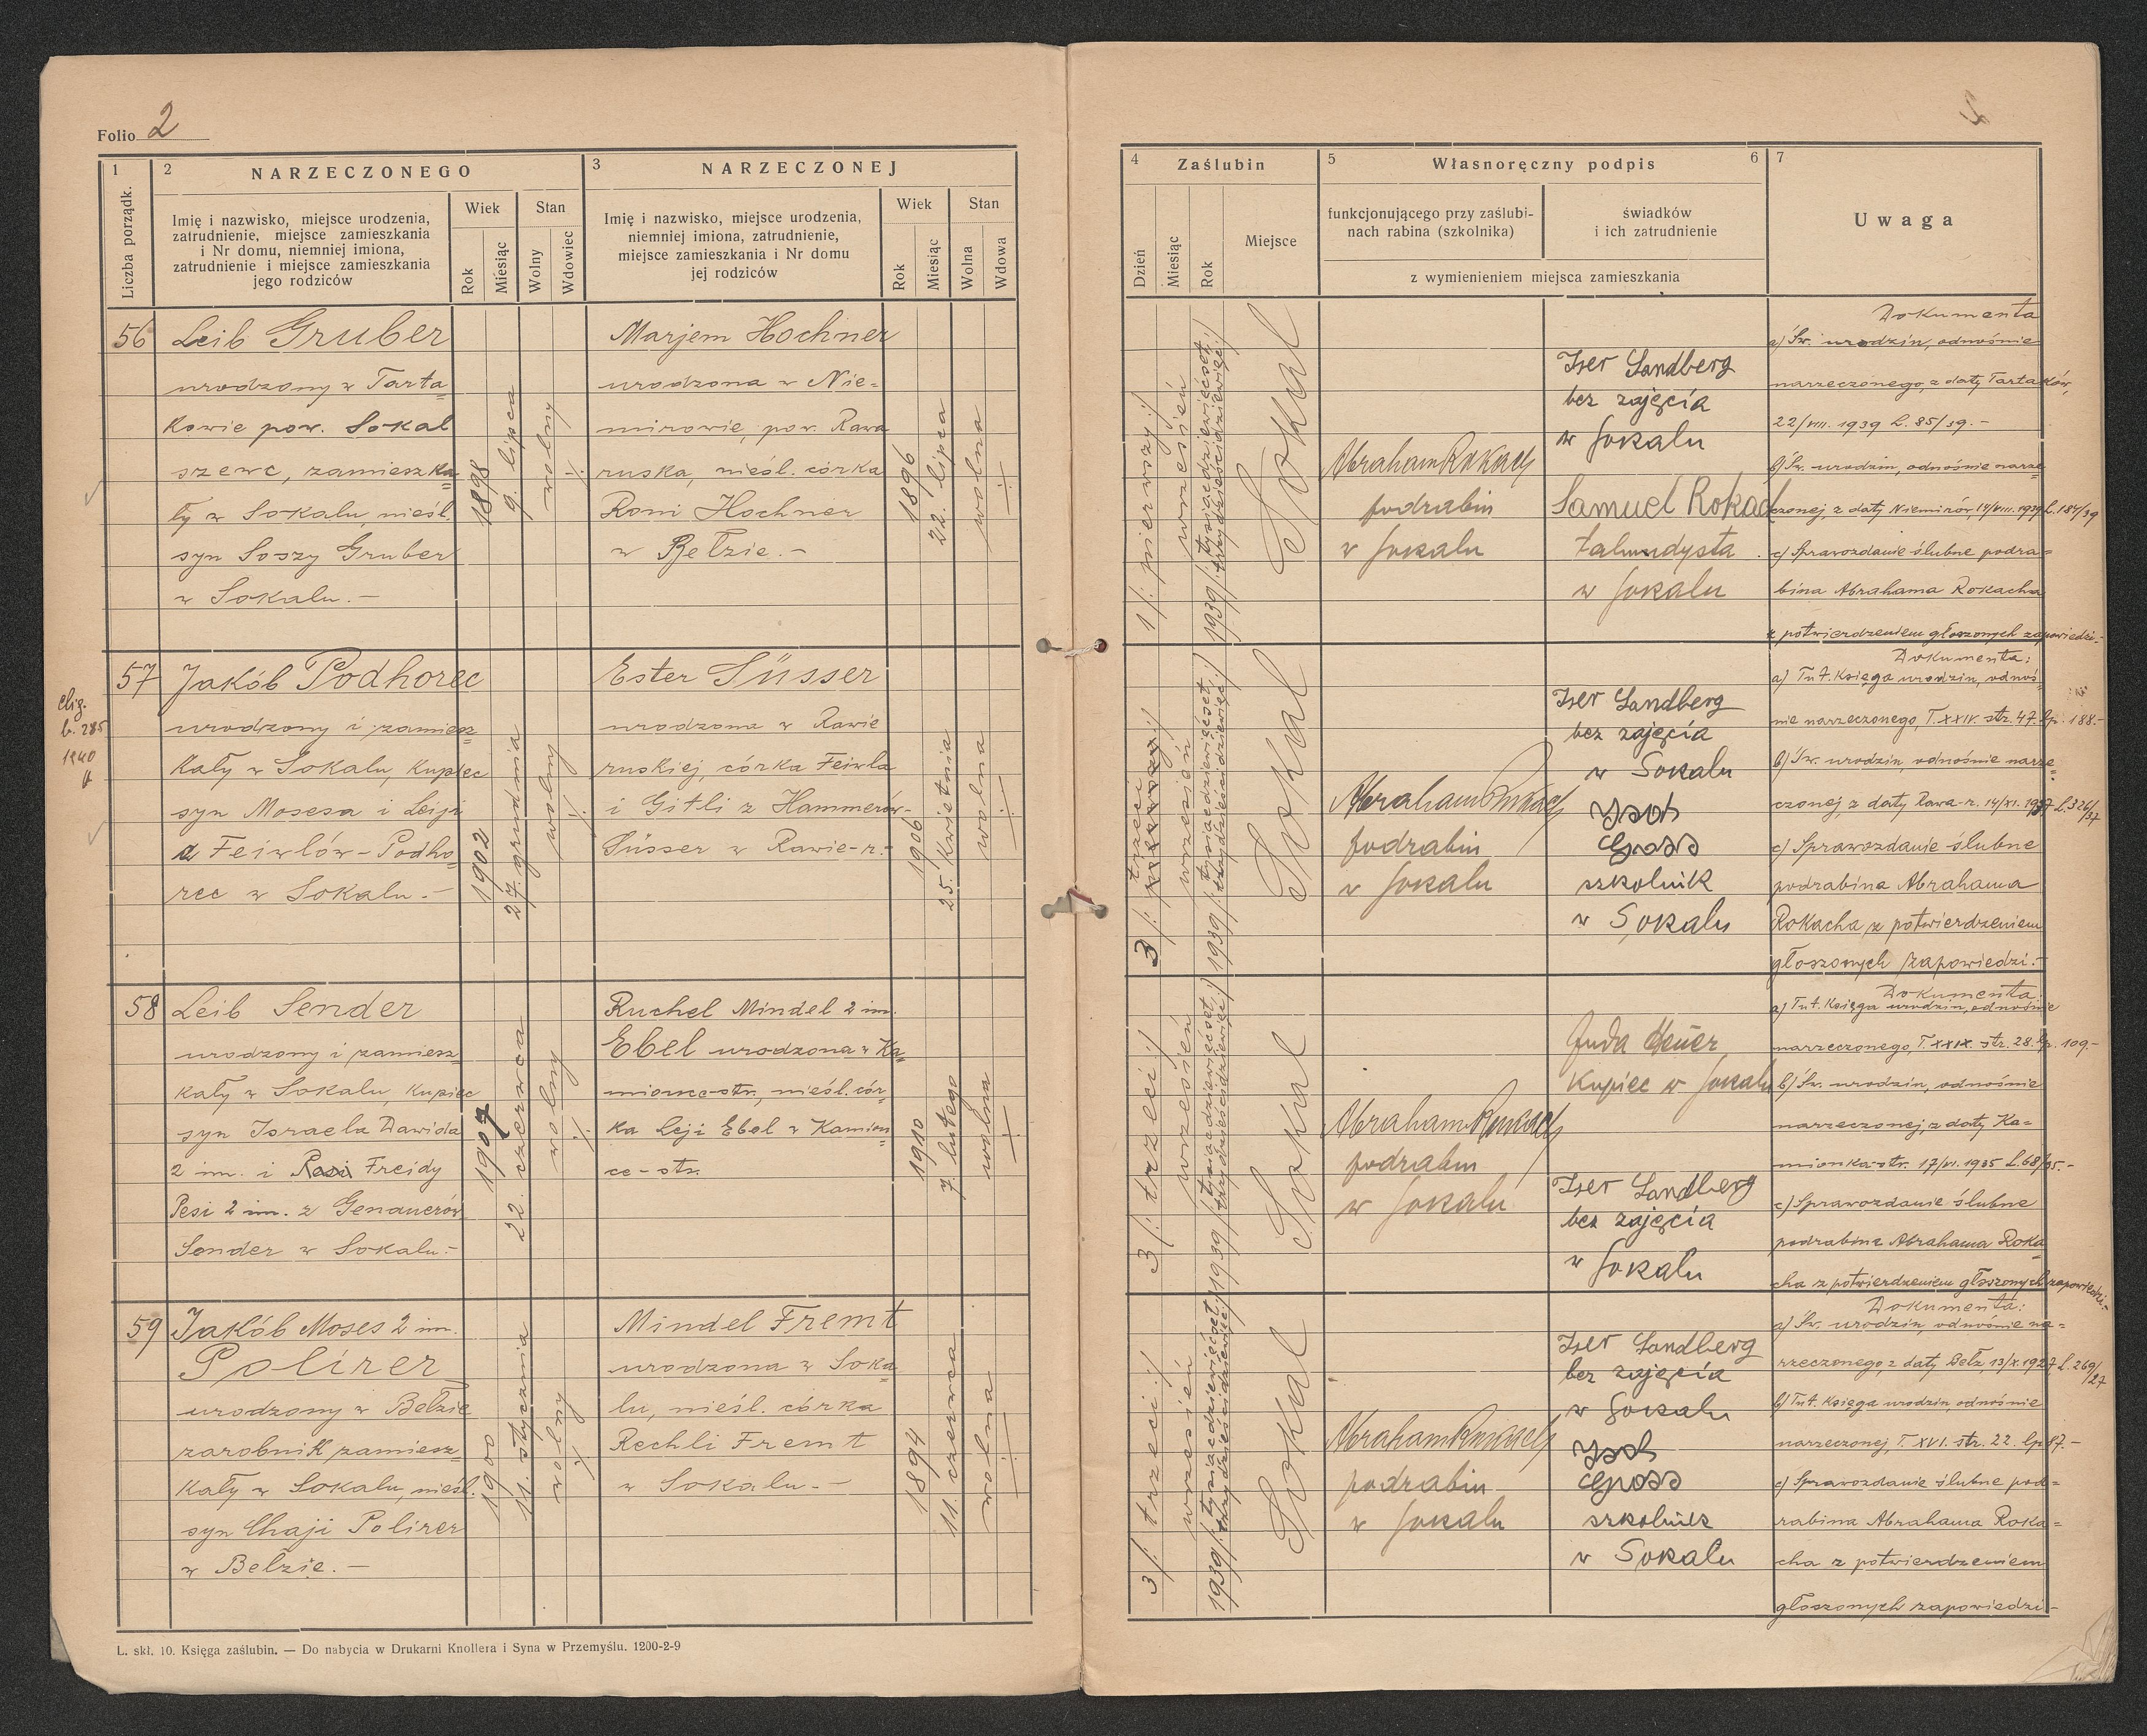 Folio 2
1
Liczba porządk.
2
NARZECZONEGO
Imię i nazwisko, miejsce urodzenia,
zatrudnienie, miejsce zamieszkania
i Nr domu, niemniej imiona,
zatrudnienie i miejsce zamieszkania
jego rodziców
Wiek
Rok
Miesiąc
Stan
Wolny
Wdowiec
3
NARZECZONEJ
Imię i nazwisko, miejsce urodzenia,
niemniej imiona, zatrudnienie,
miejsce zamieszkania i Nr domu
jej rodziców
Wiek
Rok
Miesiąc
Stan
Wolna
Wdowa
4
Zaślubin
Dzień
Miesiąc
Rok
Miejsce
5
Własnoręczny podpis
6
funkcjonującego przy zaślubi-
nach rabina (szkolnika)
świadków
i ich zatrudnienie
z wymienieniem miejsca zamieszkania
7
Uwaga
56
Leib Gruber
urodzony w Tarta-
kowie pow. Sokal
szewc, zamieszka-
ły w Sokalu, nieśl.
syn Soszy Gruber
w Sokalu.-
1898
9. lipca
wolny
Marjem Hochner
urodzona w Nie-
mirowie, pow. Rawa
ruska, nieśl. córka
Roni Hochner
w Bełzie.-
1896
22. lipca
wolna
1/: pierwszy :/
wrzesień
1939/: tysiącdziewięćset
trzydzieścidziewięć:/
Sokal
Abraham Rokach
podrabin
w Sokalu
Iser Sandberg
bez zajęcia
w Sokalu
Samuel Rokach
talmudysta
w Sokalu
Dokumenta
a) Św. urodzin, odnośnie
narzeczonego, z daty Tartaków,
22/VIII. 1939 L. 85/39.-
b) Św. urodzin, odnośnie narze-
czonej, z daty Niemirów, 14/VIII. 1939 L. 184/39
c) Sprawozdanie ślubne podra-
bina Abrahama Rokacha
z potwierdzeniem głoszonych zapowiedzi.-
57
1940
Jakób Podhorec
urodzony i zamiesz-
kały w Sokalu, kupiec
syn Mosesa i Leiji
z Feiwlów-Podho-
rec w Sokalu.-
1902
27. grudnia
wolny
Ester Süsser
urodzona w Rawie
ruskiej, córka Feiwla
i Gitli z Hammerów-
Süsser w Rawie-r.-
1906
25. kwietnia
wolna
trzeci
3/: pierwszy :/
wrzesień
1939/: tysiącdziewięćset
trzydzieścidziewięć:/
Sokal
Abraham Rokach
podrabin
w Sokalu
Iser Sandberg
bez zajęcia
w Sokalu
szkolnik
w Sokalu
Dokumenta:
a) Tut. Księga urodzin, odnoś-
nie narzeczonego, T. XXIV. str. 47. lp. 188.-
b) Św. urodzin, odnośnie narze-
czonej, z daty Rawa-r. 14/XI. 1937 L. 326/37
c) Sprawozdanie ślubne
podrabina Abrahama
Rokacha z potwierdzeniem
głoszonych zapowiedzi.-
58
Leib Sender
urodzony i zamiesz-
kały w Sokalu, kupiec
syn Israela Dawida
2 im. i Freidy
Pesi 2 im. z Genauerów
Sender w Sokalu.-
1907
22. czerwca
wolny
Ruchel Mindel 2 im.
Ebel urodzona w Ka-
mionce-str., nieśl. cór-
ka Leji Ebel w Kamion-
ce-str.
1910
7. lutego
wolna
3/: trzeci :/
wrzesień
1939/: tysiącdziewięćset
trzydzieścidziewięć:/
Sokal
Abraham Rokach
podrabin
w Sokalu
Juda
Kupiec w Sokalu
Iser Sandberg
bez zajęcia
w Sokalu
Dokumenta
a) Tut. Księga urodzin, odnośnie
narzeczonego, T. XXIX. str. 28. lp. 109.-
b) Św. urodzin, odnośnie
narzeczonej, z daty Ka-
mionka-str. 17/VI. 1935 L. 68/35.-
c) Sprawozdanie ślubne
podrabina Abrahama Roka-
cha z potwierdzeniem głoszonych zapowiedzi.-
59
Jakób Moses 2 im.
Polirer
urodzony w Bełzie
zarobnik zamiesz-
kały w Sokalu, nieśl.
syn Chaji Polirer
w Bełzie.-
1900
11. stycznia
wolny
Mindel Fremt
urodzona w Soka-
lu, nieśl. córka
Rechli Fremt
w Sokalu.-
1894
11. czerwca
wolna
3/: trzeci :/
wrzesień
1939/: tysiącdziewięćset
trzydzieścidziewięć:/
Sokal
Abraham Rokach
podrabin
w Sokalu
Iser Sandberg
bez zajęcia
w Sokalu
szkolnik
w Sokalu
Dokumenta:
a) Św. urodzin, odnośnie na-
rzeczonego, z daty Bełz, 13/X. 1927, L. 269/27
b) Tut. Księga urodzin, odnośnie
narzeczonej, T. XVI. str. 22. lp. 87.-
c) Sprawozdanie ślubne pod-
rabina Abrahama Roka-
cha z potwierdzeniem
głoszonych zapowiedzi.-
L. skł. 10. Księga zaślubin. — Do nabycia w Drukarni Knollera i Syna w Przemyślu. 1200-2-9